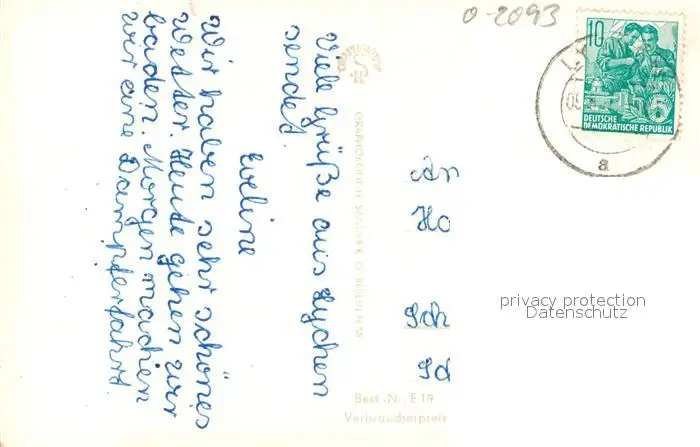 0-2093
10
DEUTSCHE
DEMOKRATISCHE REPUBLIK
5
a
Viele Grüße aus Lychen
sendet
Eveline
Wir haben sehr schönes
Wetter. Heute gehen wir
baden. Morgen machen
wir eine Dampferfahrt.
An
Ho
Sch
privacy protection
Datenschutz
Best.-Nr. E 19
Verbraucherpreis